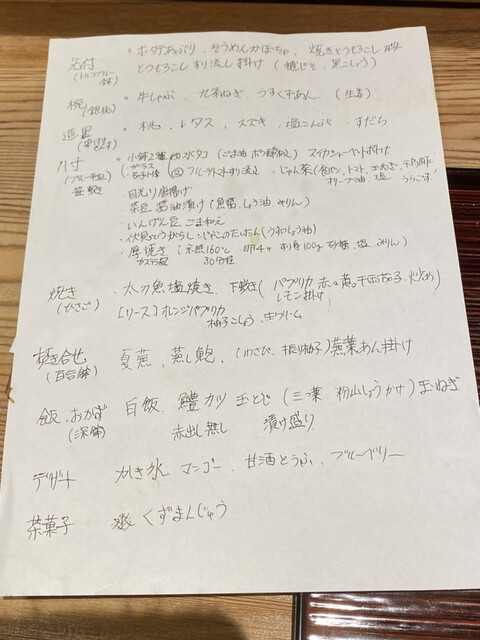 先付 ・ホタテあぶり、そうめんかぼちゃ、焼きとうもろこし
とうもろこしすり流し掛け(穂じそ、黒こしょう)
椀 ・牛しゃぶ、九条ねぎ、うすくずあん、(生姜)
造里 ・桃、レタス、スズキ、塩こんぶ、すだち
八寸 ・小鉢2種 水タコ(ごま油 スイカシャーベット
フルーツトマトすり流し)・じゃん茶(食パン、トマト、玉ねぎ、
オリーブ油 塩
・目光り唐揚げ
・茶豆 醤油漬け(魚醤、しょう油、みりん)
・いんげん豆 ごまねえ
・伏見とうがらし じゃこのたいたん(うわしょう油)
・厚焼き(予熱160℃ 卵4ヶ すり身100g 砂糖、塩、みりん)
カステラ風 30分程
焼き 太刀魚塩焼き、下敷き(パプリカ 赤、黄。千両茄子 炒め)
(ひさご) レモン掛け
[ソース]オレンジパプリカ
柚子こしょう、生クリーム
炊き合せ 夏蕪、蒸し鮑、(わさび、振り柚子)蕪葉あん掛け
(百合鉢)
飯、おかず 白飯、鱧カツ 玉とじ(三つ葉、粉山しょうかけ)玉ねぎ
(深鉢) 赤出し無し 漬け盛り
デザート かき氷 マンゴー、甘酒とうふ、ブルーベリー
茶菓子 くずまんじゅう